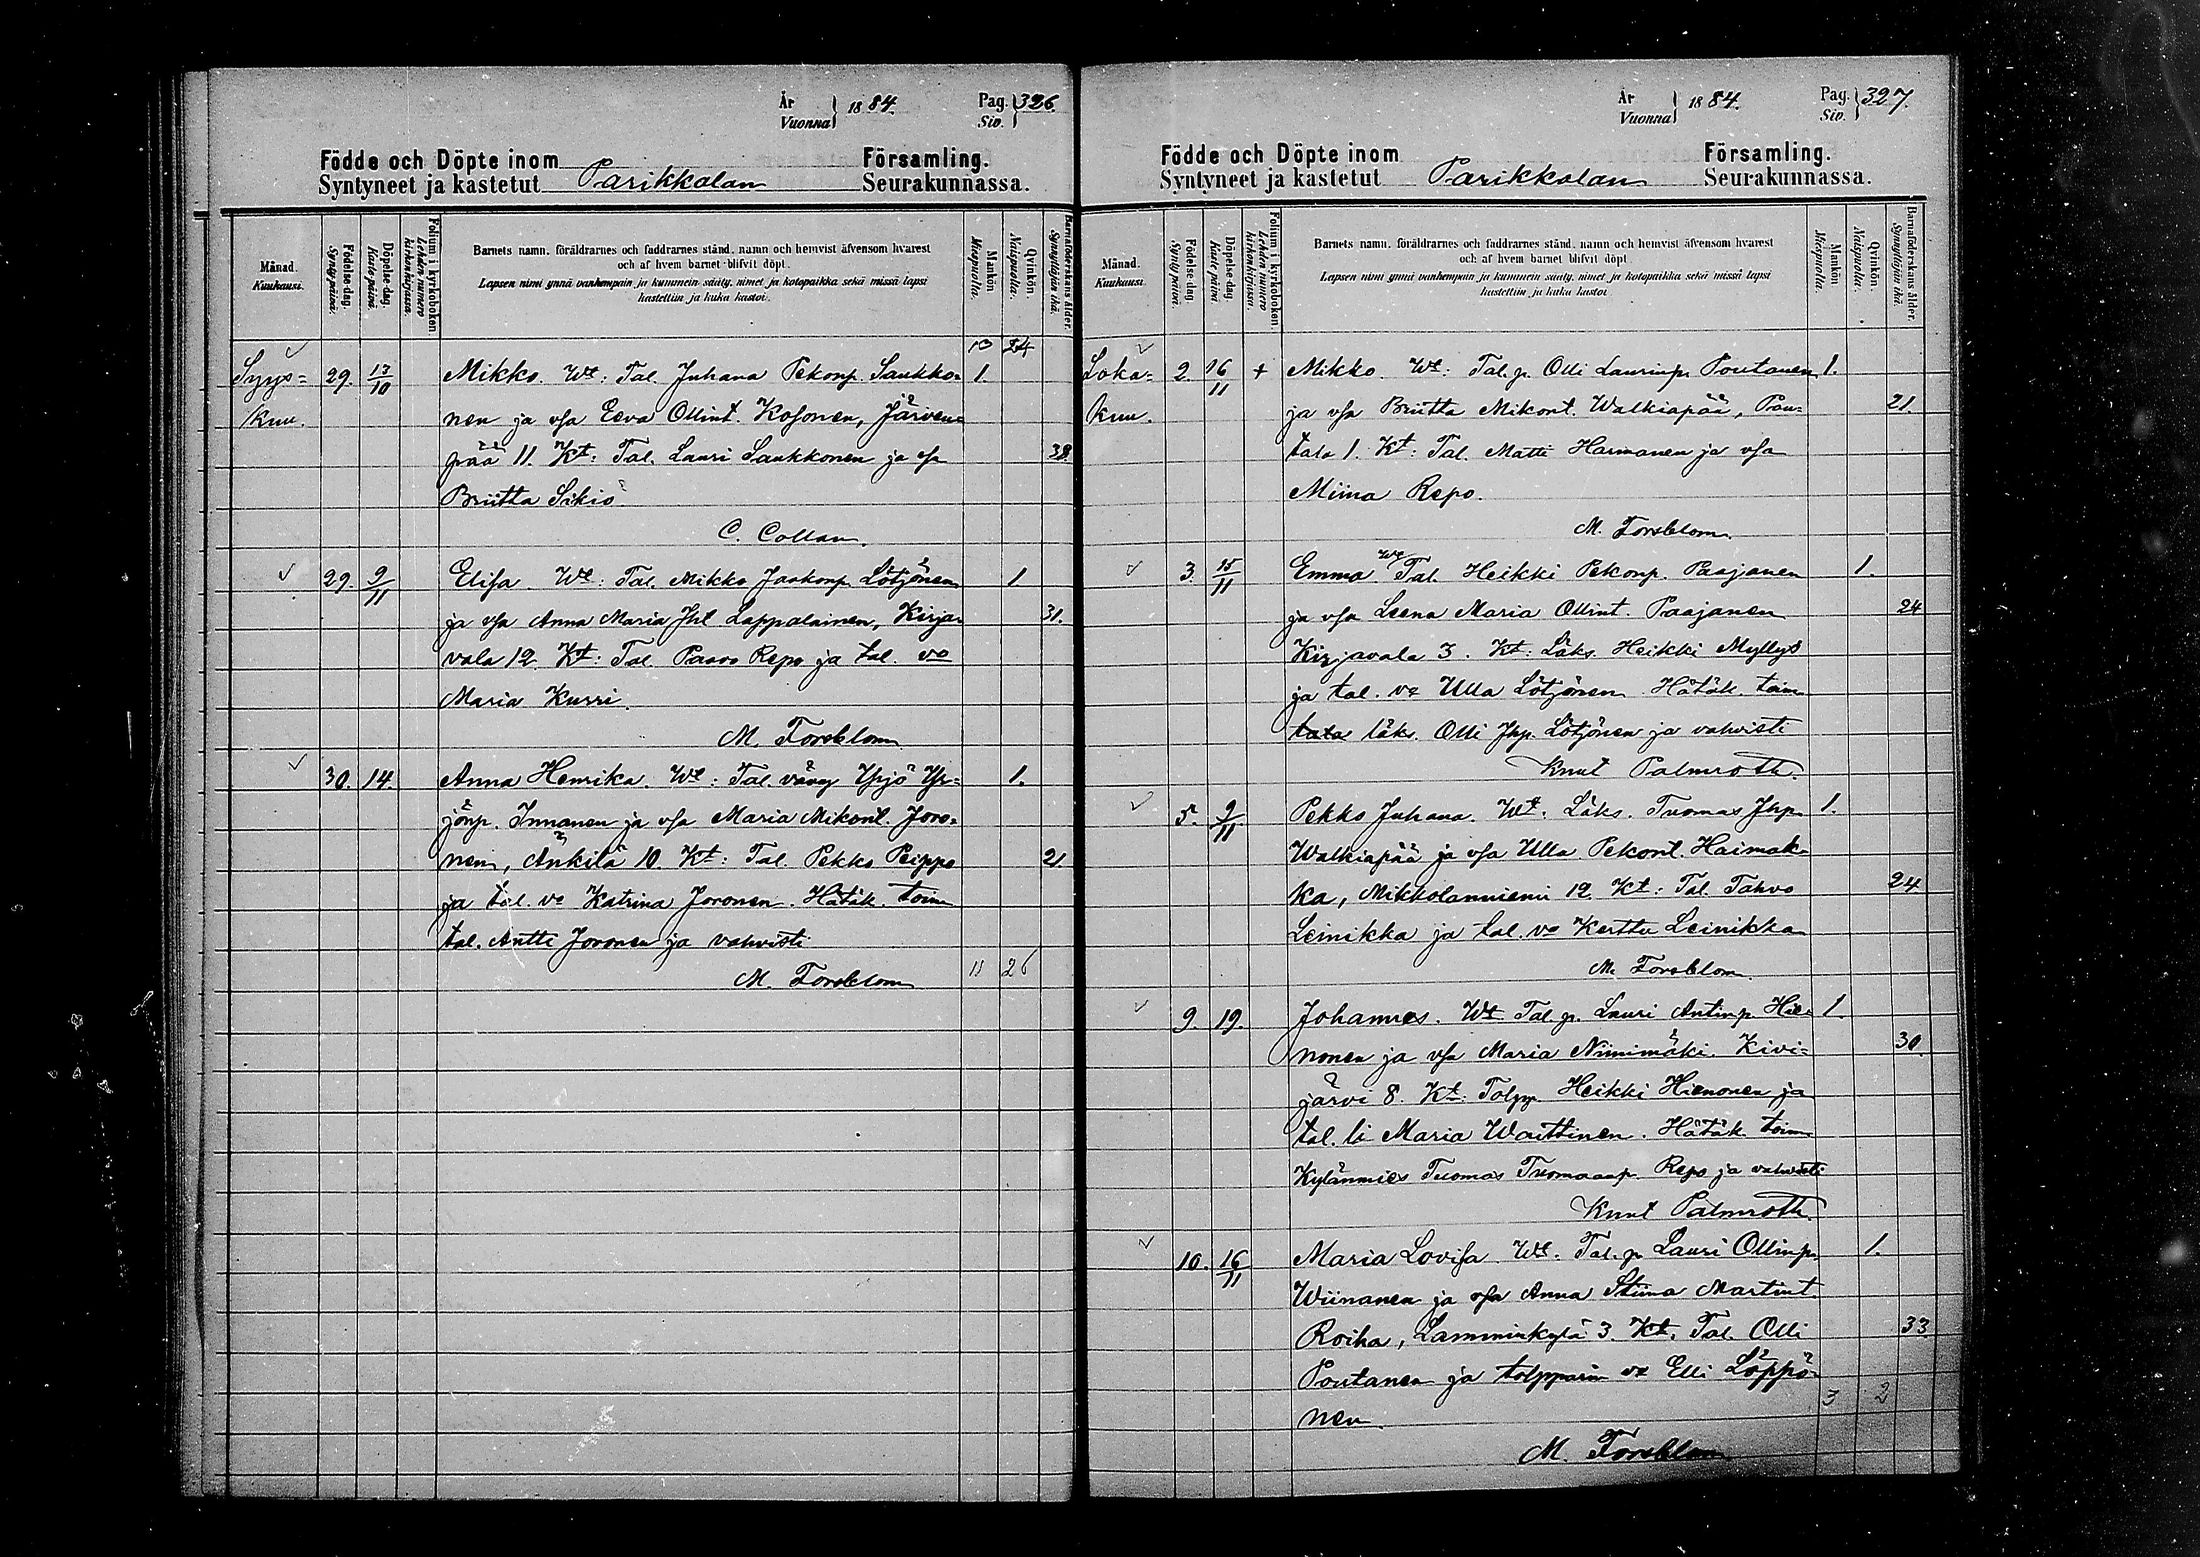 År
Vuonna } 1884. Pag.
Siv. } 326.
Födde och Döpte inom Församling.
Syntyneet ja kastetut Parikkalan Seurakunnassa.
Månad.
Kuukausi.
Födelse-dag.
Syntypäivä.
Döpelse-dag.
Kaste-päivä.
Folium i kyrkoboken.
Lehden numero kirkonkirjassa.
Barnets namn, föräldrarnes och faddrarnes stånd, namn och hemvist äfvensom hvarest
och af hvem barnet blifvit döpt.
Lapsen nimi ynnä vanhempain ja kummein sääty, nimet ja kotopaikka sekä missä lapsi
kastettiin ja kuka kastoi.
Mankön
Miespuolia.
Qvinkön.
Naispuolia.
Barnaföderskans ålder.
Synnyttäjän ikä.
10 24
Syys= 29. 13/10 Mikko. Wt: Tal. Juhana Pekonp. Saukko= 1.
kuu. nen ja vsa Eeva Ollint. Kosonen, Järven=
pää 11. Kt: Tal. Lauri Saukkonen ja vsa 38.
Briitta Sikiö.
C. Collan.
29. 9/11 Elisa. Wt: Tal. Mikko Jaakonp. Lötjönen 1.
ja vsa Anna Maria Jht Lappalainen, Kirja= 31.
vala 12. Kt: Tal. Paavo Repo ja tal. vo
Maria Kurri.
M. Forsblom
30. 14. Anna Henrika. Wt: Tal. vävy Yrjö Yr= 1.
jönp. Innanen ja vsa Maria Mikont. Joro=
nen, Änkilä 10. Kt: Tal. Pekko Peippo 21.
ja tal. vo Katrina Joronen. Hätäk. toim
tal. Antti Joronen ja vahvisti
M. Forsblom 11 26
År
Vuonna } 1884. Pag.
Siv. } 327.
Födde och Döpte inom Församling.
Syntyneet ja kastetut Parikkalan Seurakunnassa.
Månad.
Kuukausi.
Födelse-dag.
Syntypäivä.
Döpelse-dag.
Kaste päivä.
Folium i kyrkoboken.
Lehden numero kirkonkirjassa.
Barnets namn, föräldrarnes och faddrarnes stånd, namn och hemvist äfvensom hvarest
och af hvem barnet blifvit döpt.
Lapsen nimi ynnä vanhempain ja kummein sääty, nimet ja kotopaikka sekä missä lapsi
kastettiin ja kuka kastoi.
Mankön
Miespuolia.
Qvinkön.
Naispuolia.
Barnaföderskans ålder.
Synnyttäjän ikä.
Loka= 2. 16/11 + Mikko. Wt: Tal. p. Olli Laurinp. Poutanen 1.
kuu. ja vsa Briitta Mikont. Walkiapää, Pou= 21.
tala 1. Kt: Tal. Matti Harmanen ja vsa
Miina Repo.
M. Forsblom.
3. 15/11 Emma Wt Tal. Heikki Pekonp. Paajanen 1.
ja vsa Leena Maria Ollint. Paajanen 24
Kirjavala 3. Kt: Läks. Heikki Myllys
ja tal. vo Ulla Lötjönen. Hätäk. toim
läks. Olli Jhp. Lötjönen ja vahvisti
Knut Palmroth.
5. 9/11 Pekko Juhana. Wt: Läks. Tuomas Jhp. 1.
Walkiapää ja vsa Ulla Pekont. Haimak=
ka, Mikkolanniemi 12. Kt: Tal. Tahvo 24
Leinikka ja tal. vo Kerttu Leinikka
M. Forsblom
9. 19. Johannes. Wt: Tal. p. Lauri Antinp. Hie= 1.
nonen ja vsa Maria Niinimäki. Kivi= 30.
järvi 8. Kt: Tolpp. Heikki Hienonen ja
tal. ti Maria Waittinen. Hätäk. toim
Kylänmies Tuomas Tuomaanp. Repo ja vahvisti
Knut Palmroth.
10. 16/11 Maria Lovisa. Wt: Tal. p. Lauri Ollinp. 1.
Wiinanen ja vsa Anna Stiina Martint
Roiha, Lamminkylä 3. Kt. Tal. Olli 33
Poutanen ja tolpparin vo Elli Löppö=
nen. 3 2
M. Forsblom